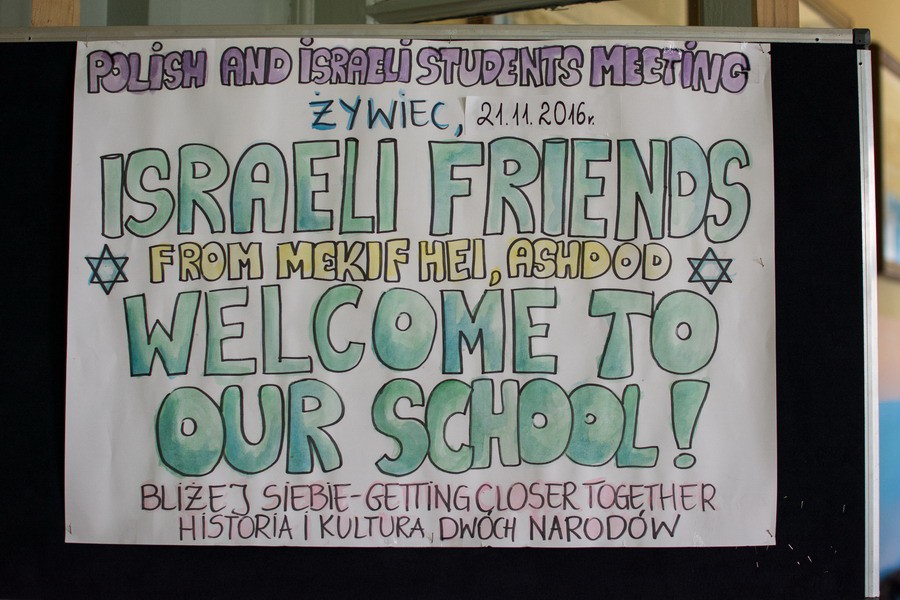 POLISH AND ISRAELI STUDENTS MEETING
ŻYWIEC, 21.11.2016r.
ISRAELI FRIENDS
FROM MEKIF HEI, ASHDOD
WELCOME TO
OUR SCHOOL!
BLIŻEJ SIEBIE-GETTING CLOSER TOGETHER
HISTORIA I KULTURA DWÓCH NARODÓW